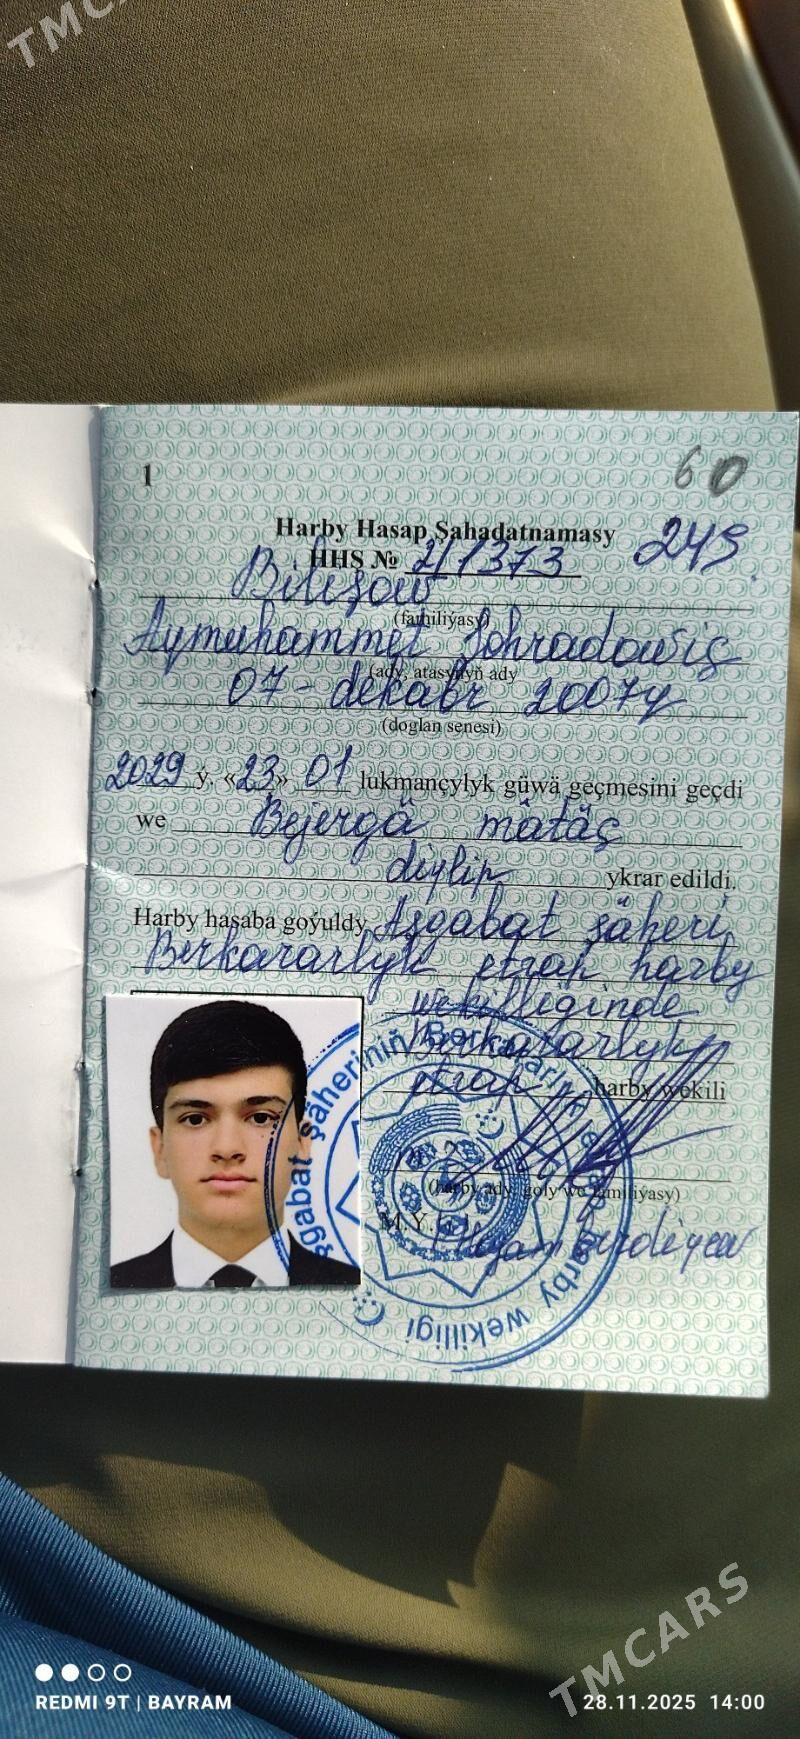 TMCARS
1
60
Harby Hasap Şahadatnamasy
249
HHS № 2/1373
Bilişow
(familiýasy)
Aymuhammet Şohradowiç
(ady, atasynyň ady
07 - dekabr 2007ý
(doglan senesi)
2029 ý. «23» 01 lukmançylyk güwä geçmesini geçdi
we Bejergä mätäç
diylip ykrar edildi.
Harby hasaba goýuldy Aşgabat şäheri,
Berkararlyk etrap harby
wekilliginde
Berkararlyk
etrap harby wekili
(harby ady, goly we familiýasy)
M.Ý.
wekilligi
TMCARS
REDMI 9T | BAYRAM
28.11.2025 14:00